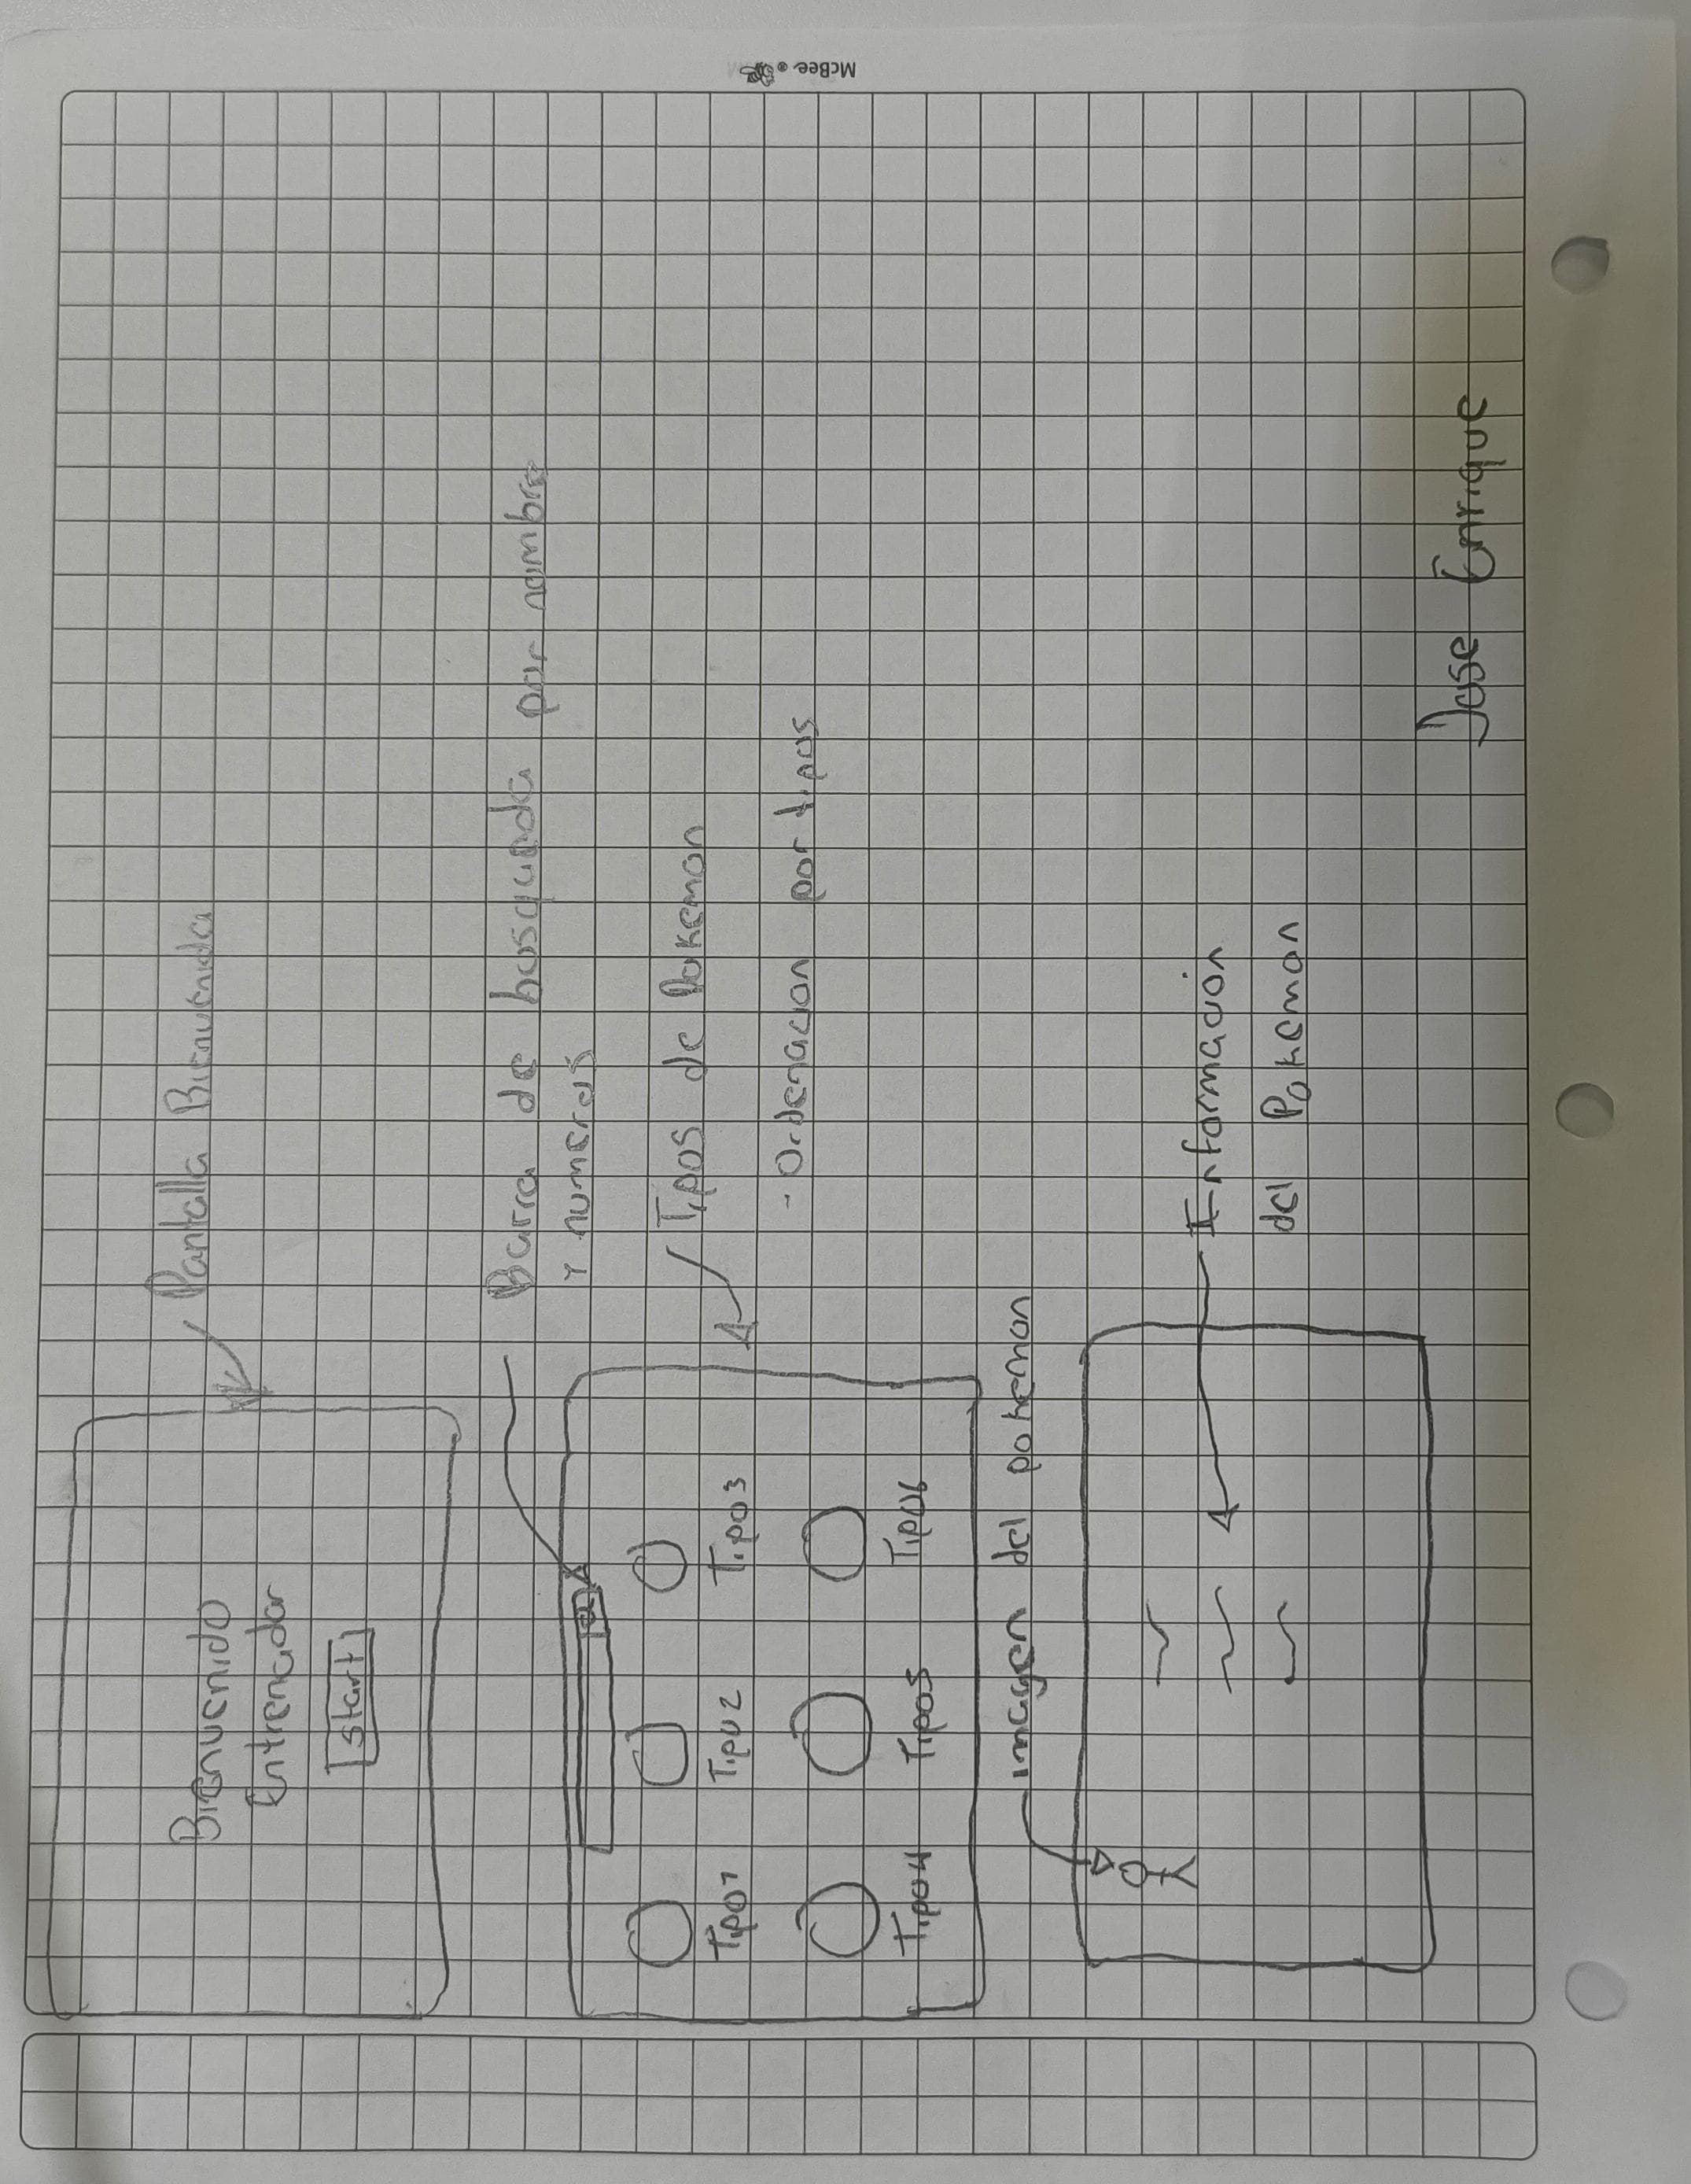 McBee
Pantalla Bienvenida
Bienvenido
Entrenador
start
Barra de busqueda por nombre
y numeros
Tipos de Pokemon
- Ordenacion por tipos
Tipo1 Tipo2 Tipo3
Tipo4 Tipo5 Tipo6
imagen del pokemon
Información
del Pokemon
Jose Enrique